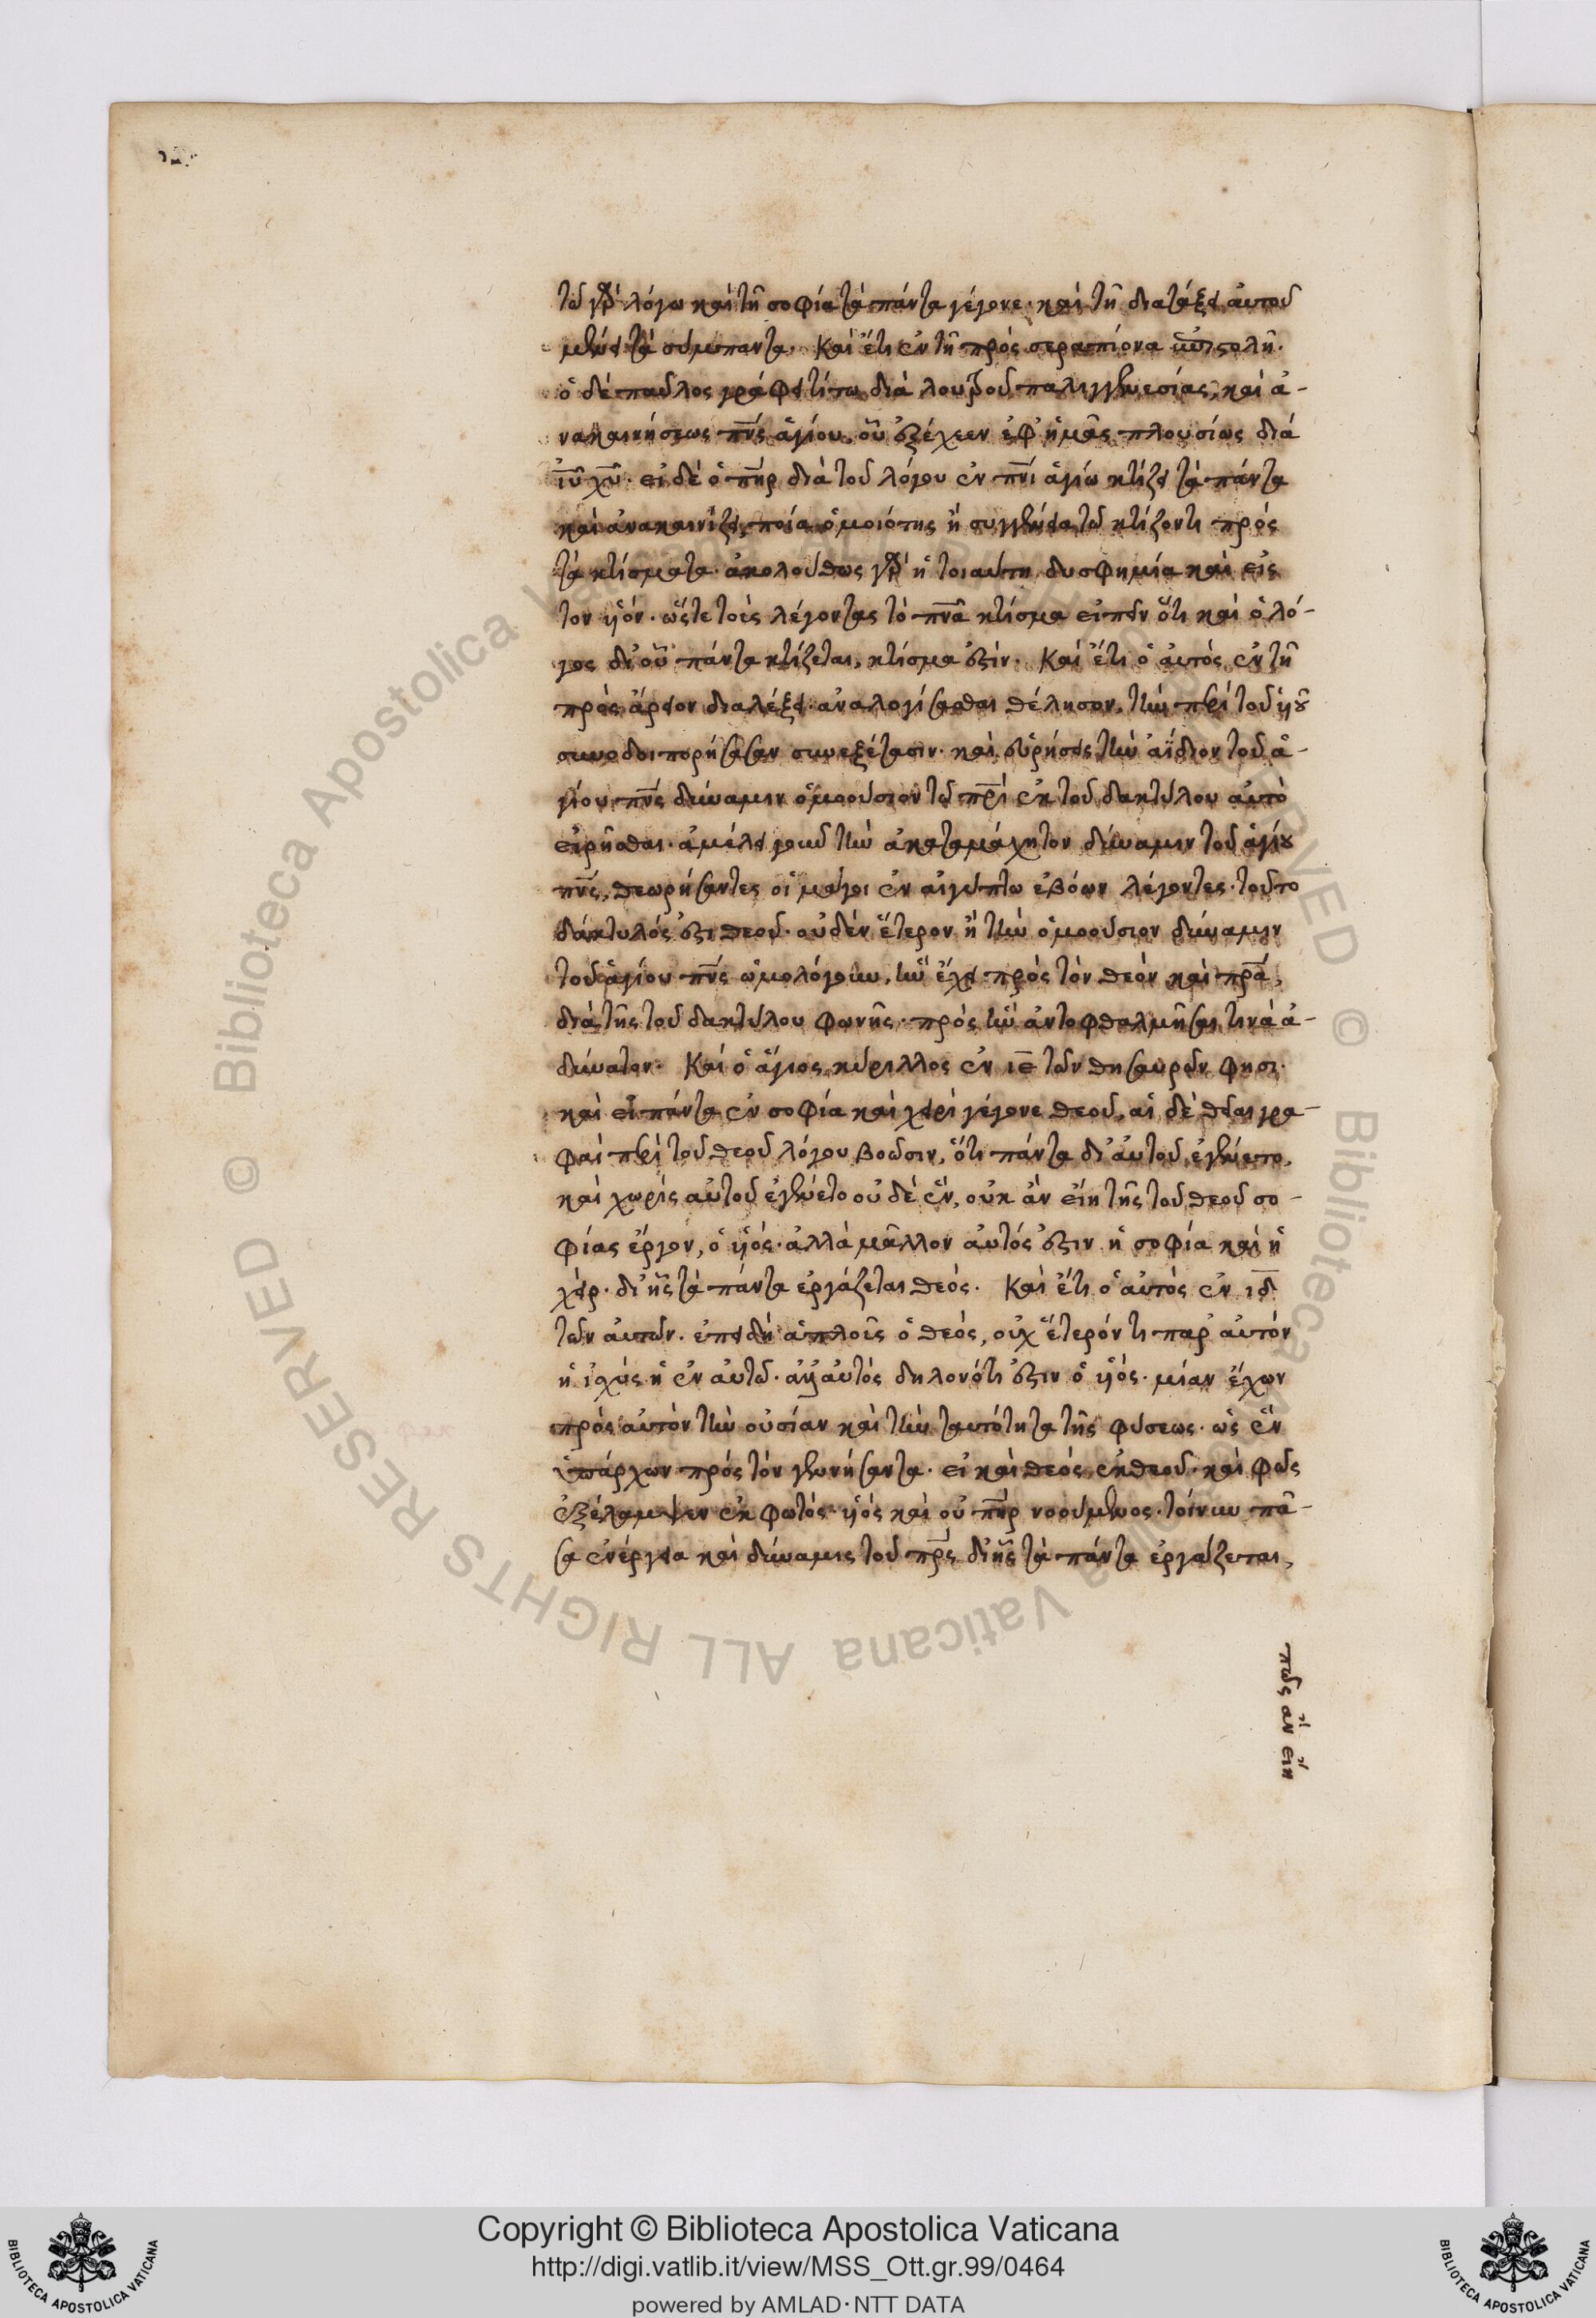 τῶ γὰρ λόγω καὶ τῆ σοφία τὰ πάντα γέγονε· καὶ τῆ διατάξει αὐτοῦ
μένει τὰ σύμπαντα. Καὶ ἔτι ἐν τῆ πρὸς σεραπίονα ἐπιστολῆ.
ὁ δὲ παῦλος γράφει τίτω διὰ λουτροῦ παλιγγενεσίας, καὶ ἀ-
νακαινήσεως πν̅ς ἁγίου, οὗ ἐξέχεεν ἐφ' ἡμᾶς πλουσίως διὰ
ἰ̅υ̅ χ̅υ̅. εἰ δὲ ὁ πη̅ρ διὰ τοῦ λόγου ἐν πν̅ι ἁγίω κτίζει τὰ πάντα
καὶ ἀνακαινίζει, ποία ὁμοιότης ἢ συγγένεια τῶ κτίζοντι πρὸς
τὰ κτίσματα. ἀκολούθως γὰρ ἡ τοιαύτη δυσφημία καὶ εἰς
τον ὑϊόν. ὥστε τοὺς λέγοντας τὸ πν̅α κτίσμα εἰπεῖν ὅτι καὶ ὁ λό-
γος δι' οὗ πάντα κτίζεται, κτίσμα ἐστίν. Καὶ ἔτι ὁ αὐτὸς ἐν τῆ
πρὸς ἄρειον διαλέξει· ἀναλογίσασθαι θέλησον, τὴν περὶ τοῦ ὑιοῦ
συνοδοιπορήσασαν συνεξέτασιν. καὶ εὑρήσεις τὴν ἀΐδιον τοῦ ἁ-
γίου πν̅ς δύναμιν ὁμοούσιον τῶ πρ̅ι ἐκ τοῦ δακτύλου αὐτὸ
εἰρῆσθαι. ἀμέλει γοῦν τὴν ἀκαταμάχητον δύναμιν τοῦ ἁγίου
πν̅ς, θεωρήσαντες οἱ μάγοι ἐν αἰγύπτω ἐβόων λέγοντες· τοῦτο
δάκτυλός ἐστι θεοῦ. οὐδὲν ἕτερον ἢ τὴν ὁμοούσιον δύναμιν
τοῦ ἁγίου πν̅ς ὡμολόγουν, ἣν ἔχει πρὸς τὸν θεὸν καὶ πρ̅α,
διὰ τῆς τοῦ δακτύλου φωνῆς· πρὸς ἣν ἀντοφθαλμῆσαι τινὰ ἀ-
δύνατον. Καὶ ὁ ἅγιος κύριλλος ἐν ι̅ε̅ τῶν θησαυρῶν φησι.
καὶ εἰ πάντα ἐν σοφία καὶ χειρὶ γέγονε θεοῦ, αἱ δὲ θεῖαι γρα-
φαὶ περὶ τοῦ θεοῦ λόγου βοῶσιν, ὅτι πάντα δι' αὐτοῦ ἐγένετο,
καὶ χωρὶς αὐτοῦ ἐγένετο οὐδὲ ἕν, οὐκ ἂν εἴη τῆς τοῦ θεοῦ σο-
φίας ἔργον, ὁ ὑϊός. ἀλλὰ μᾶλλον αὐτός ἐστιν ἡ σοφία καὶ ἡ
χείρ. δι' ἧς τὰ πάντα ἐργάζεται θεός. Καὶ ἔτι ὁ αὐτὸς ἐν ι̅δ̅
τῶν αὐτῶν. ἐπειδὴ ἁπλοῦς ὁ θεός, οὐχ ἕτερόν τι παρ' αὐτόν
ἡ ἰσχὺς ἡ ἐν αὐτῶ. ἀλλ' αὐτὸς δηλονότι ἐστιν ὁ ὑϊός. μίαν ἔχων
πρὸς αὐτὸν τὴν οὐσίαν καὶ τὴν ταυτότητα τῆς φύσεως. ὡς ἓν
ὑπάρχων πρὸς τὸν γεννήσαντα. εἰ καὶ θεὸς ἐκ θεοῦ. καὶ φῶς
ἐξέλαμψεν ἐκ φωτός. ὑϊὸς καὶ οὐ πη̅ρ νοούμενος. τοίνυν πᾶ-
σα ἐνέργεια καὶ δύναμις τοῦ πρ̅ς δι' ἧς τὰ πάντα ἐργάζεται,
πῶς ἂν εἴη
Copyright © Biblioteca Apostolica Vaticana
http://digi.vatlib.it/view/MSS_Ott.gr.99/0464
powered by AMLAD·NTT DATA
BIBLIOTECA APOSTOLICA VATICANA
BIBLIOTECA APOSTOLICA VATICANA
© Biblioteca Apostolica Vaticana ALL RIGHTS RESERVED